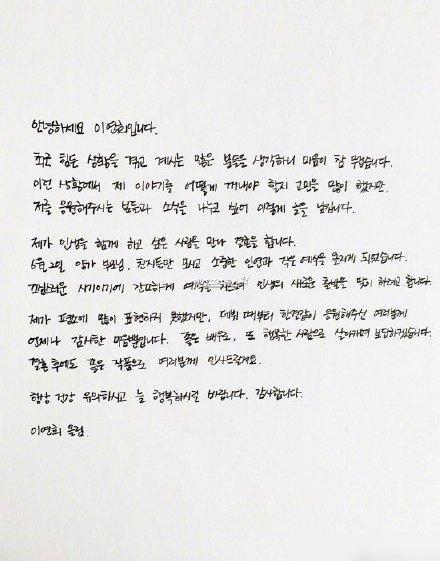 안녕하세요 이연희입니다.
최근 힘든 상황을 겪고 계시는 많은 분들을 생각하니 마음이 참 무겁습니다.
이런 상황에서 제 이야기를 어떻게 꺼내야 할지 고민을 많이 했지만,
저를 응원해주시는 분들과 소식을 나누고 싶어 이렇게 글을 남깁니다.
제가 인생을 함께 하고 싶은 사람을 만나 결혼을 합니다.
6월 2일 양가 부모님, 친지들만 모시고 소중한 인연과 작은 예식을 올리게 되었습니다.
조심스러운 시기이기에 간소하게 예식을 하며 인생의 새로운 출발을 맞이 하려고 합니다.
제가 평소에 많이 표현하지 못했지만, 데뷔 때부터 한결같이 응원해주신 여러분께
언제나 감사한 마음뿐입니다. 좋은 배우로, 또 행복한 사람으로 살아가며 보답하겠습니다.
결혼 후에도 좋은 작품으로 여러분께 인사드릴게요.
항상 건강 유의하시고 늘 행복하시길 바랍니다. 감사합니다.
이연희 올림.